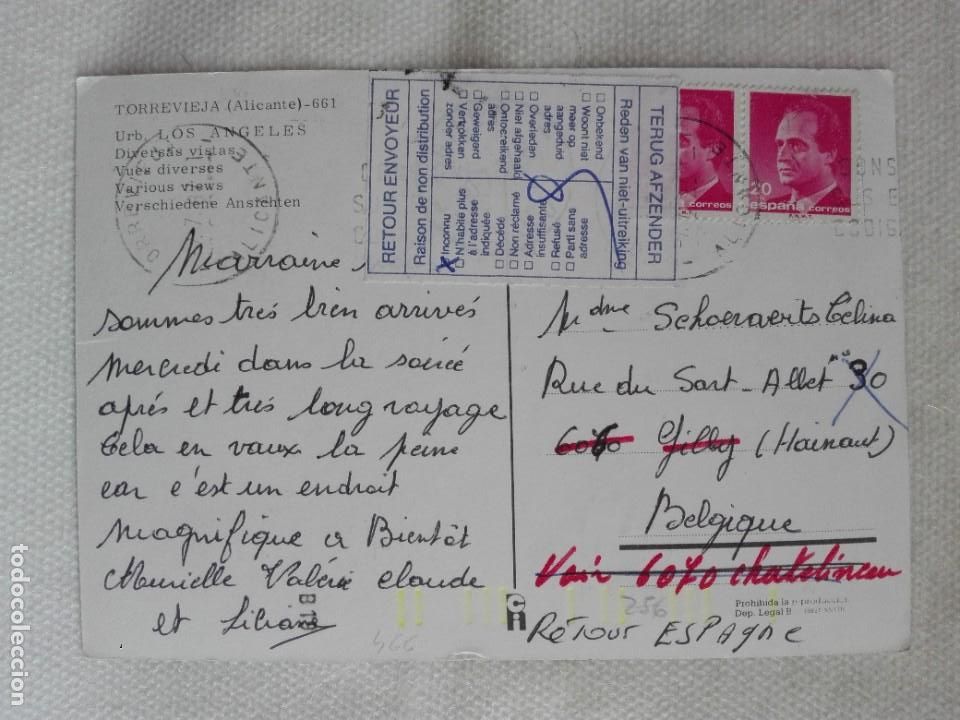 TORREVIEJA (Alicante)-661
Urb. LOS ANGELES
Diversas vistas
Vues diverses
Various views
Verschiedene Ansichten
Marraine,
sommes très bien arrivés
mercredi dans la soirée
aprés et très long voyage
Cela en vaux la peine
car c'est un endroit
magnifique a Bientôt
Murielle Valérie claude
et Liliane
TERUG AFZENDER
Reden van niet-uitreiking
☐ Onbekend
☐ Woont niet
meer op
aangeduid
adres
☐ Overleden
☐ Niet afgehaald
☐ Ontoereikend
adres
☐ Geweigerd
☐ Vertrokken
zonder adres
RETOUR ENVOYEUR
Raison de non distribution
☐ Inconnu
☐ N'habite plus
à l'adresse
indiquée
☐ Décédé
☐ Non réclamé
☐ Adresse
insuffisante
☐ Refusé
☐ Parti sans
adresse
20
españa correos
correos
ALICANTE
Mdme Schoeraerts Celina
Rue du Sart-Allet 30
6060 Gilly (Hainaut)
Belgique
Voir 6070 chatelineau
Prohibida la reproducción
Dep. Legal B
RETOUR ESPAGNE
256
466
todocoleccion